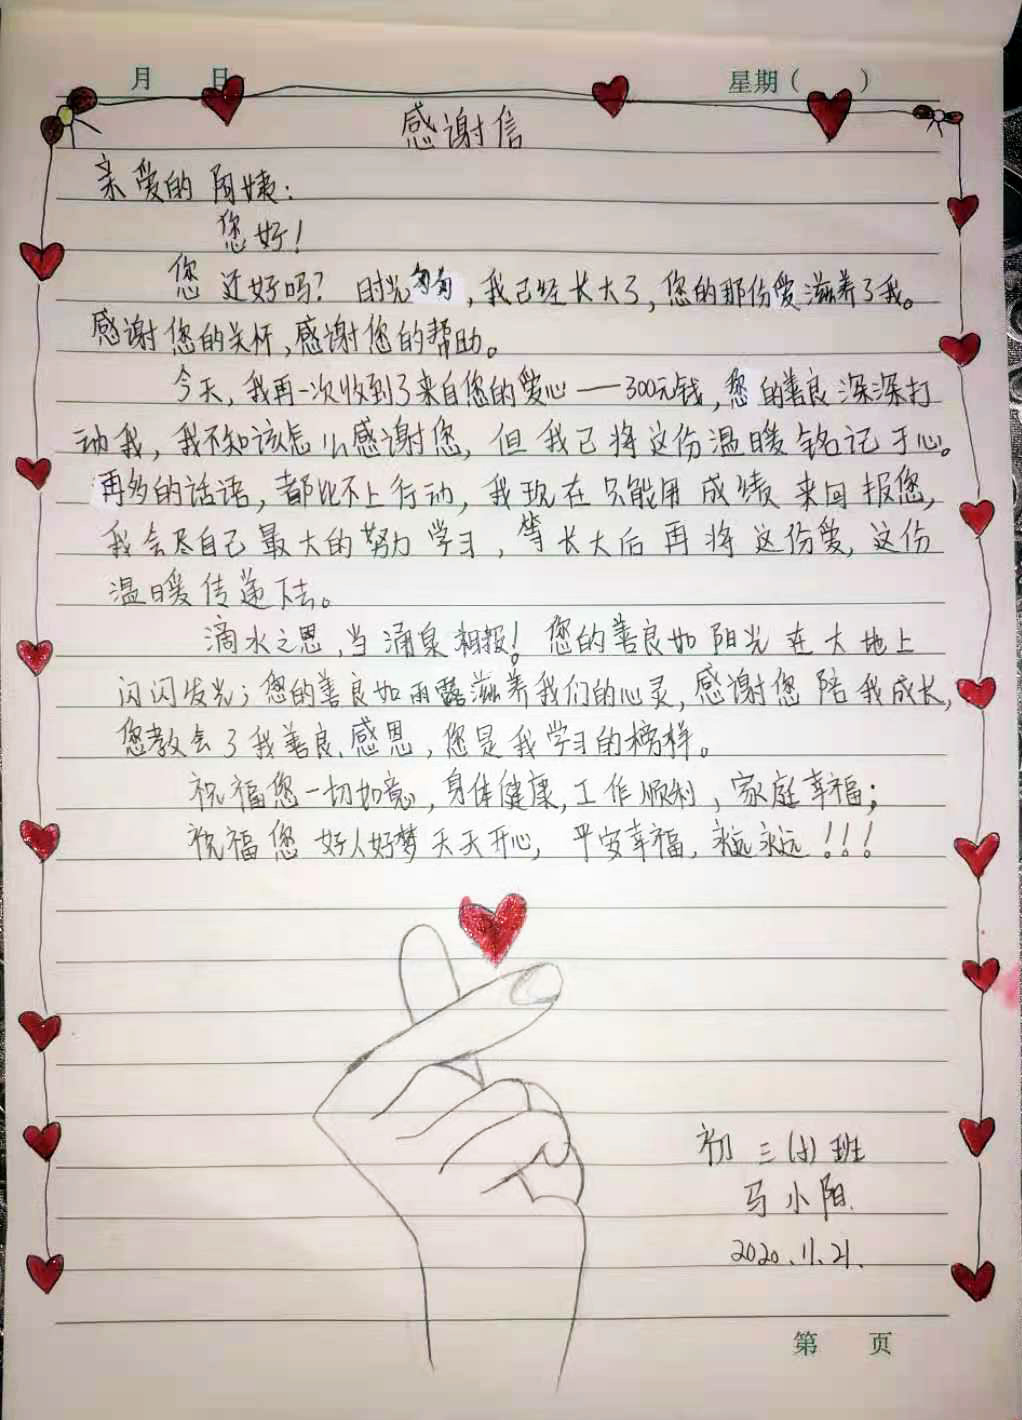 月 日 星期( )
感谢信
亲爱的阿姨:
您好!
您还好吗?时光匆匆,我已经长大了,您的那份爱滋养了我。
感谢您的关怀,感谢您的帮助。
今天,我再一次收到了来自您的爱心——300元钱,您的善良深深打
动我,我不知该怎么感谢您,但我已将这份温暖铭记于心。
再多的话语,都比不上行动,我现在只能用成绩来回报您,
我会尽自己最大的努力学习,等长大后再将这份爱,这份
温暖传递下去。
滴水之恩,当涌泉相报!您的善良如阳光在大地上
闪闪发光;您的善良如雨露滋养我们的心灵,感谢您陪我成长,
您教会了我善良、感恩,您是我学习的榜样。
祝福您一切如意,身体健康,工作顺利,家庭幸福;
祝福您好人好梦天天开心,平安幸福,永远永远!!!
初三(1)班
马小阳.
2020.11.21.
第 页